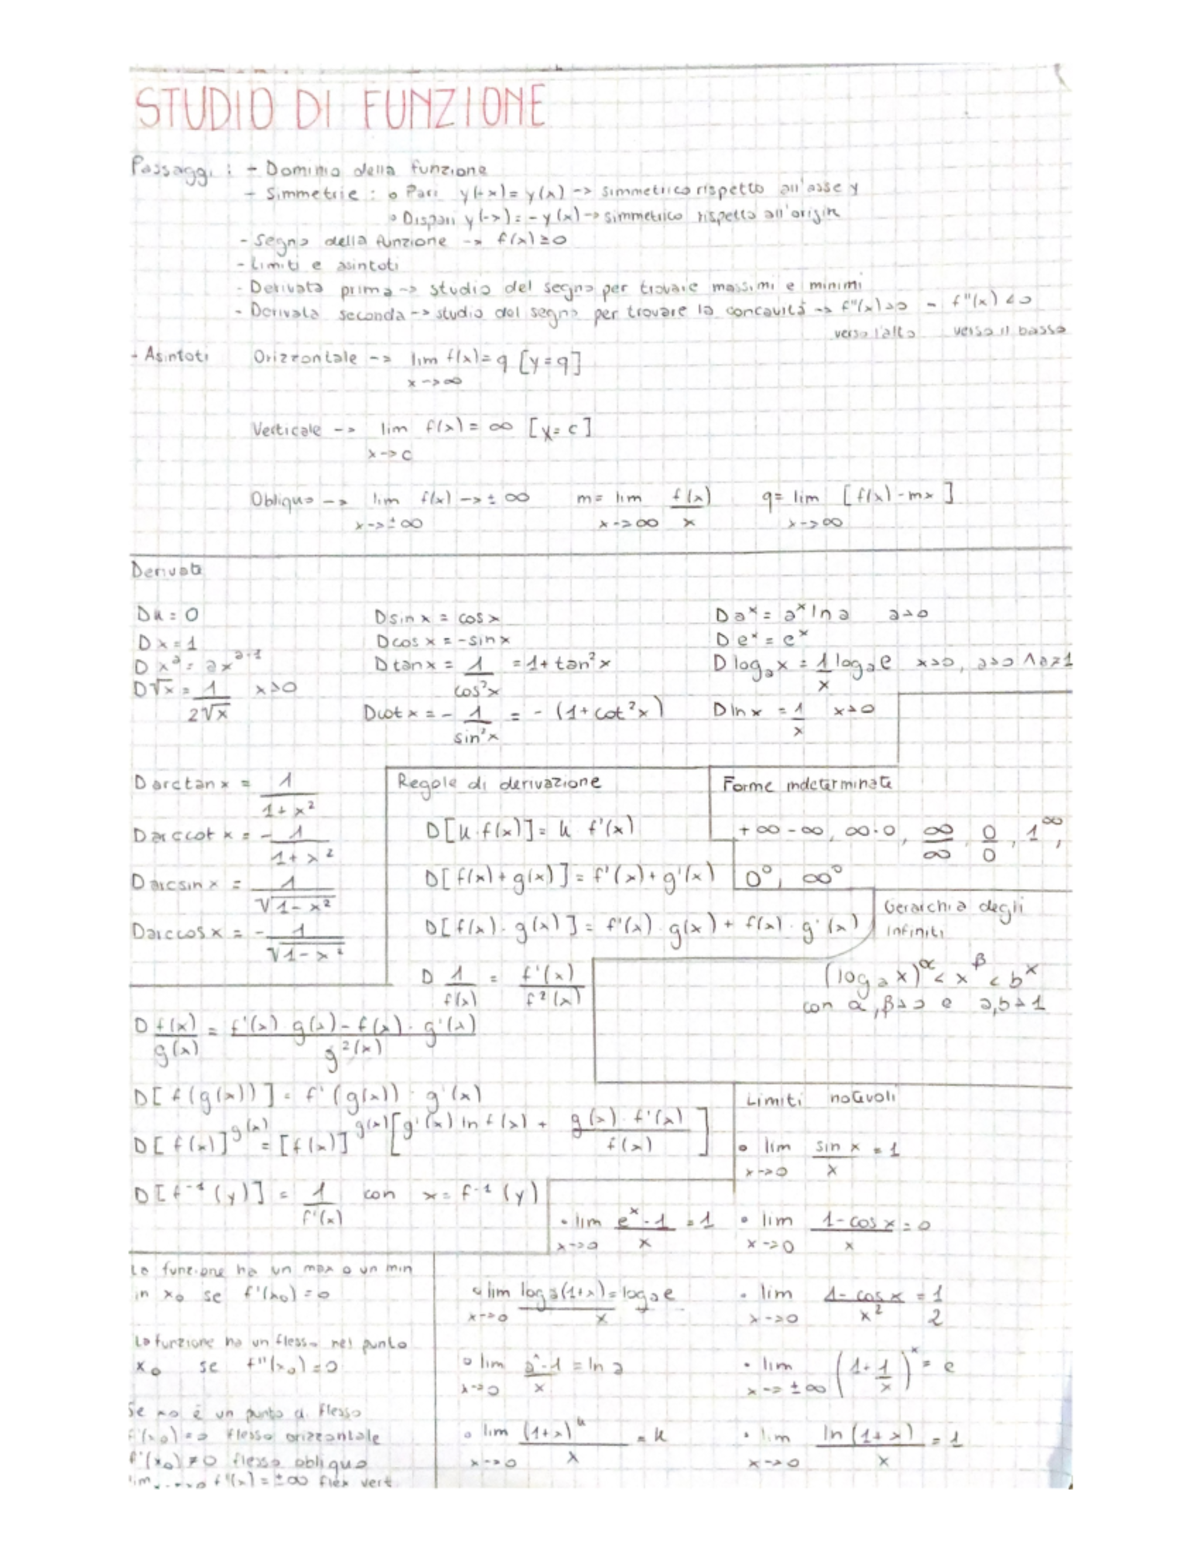 STUDIO DI FUNZIONE
Passaggi : - Dominio della funzione
- Simmetrie : o Pari y(-x) = y(x) -> simmetrico rispetto all'asse y
o Dispari y(-x) = - y(x) -> simmetrico rispetto all'origin
- Segno della funzione -> f(x) ≥ 0
- Limiti e asintoti
- Derivata prima -> studio del segno per trovare massimi e minimi
- Derivata seconda -> studio del segno per trovare la concavità -> f"(x)>0 - f"(x)<0
verso l'alto verso il basso
- Asintoti Orizzontale -> lim f(x) = q [y = q]
x->∞
Verticale -> lim f(x) = ∞ [x = c]
x->c
Obliquo -> lim f(x) -> ± ∞ m = lim f(x)/x q = lim [f(x) - mx]
x->±∞ x->∞ x->∞
Derivate
Dk = 0 D sin x = cos x D aˣ = aˣ ln a a>0
Dx = 1 D cos x = - sin x D eˣ = eˣ
D xᵃ = a xᵃ⁻¹ D tan x = 1/cos²x = 1 + tan²x D logₐ x = 1/x logₐ e x>0, a>0 ∧ a≠1
D√x = 1/2√x x>0 D cot x = - 1/sin²x = - (1 + cot²x) D ln x = 1/x x>0
D arctan x = 1/1 + x²
D arccot x = - 1/1 + x²
D arcsin x = 1/√1 - x²
D arccos x = - 1/√1 - x²
Regole di derivazione
D[k · f(x)] = k · f'(x)
D[f(x) + g(x)] = f'(x) + g'(x)
D[f(x) · g(x)] = f'(x) · g(x) + f(x) · g'(x)
D 1/f(x) = f'(x)/f²(x)
Forme indeterminate
+∞ -∞, ∞·0, ∞/∞, 0/0, 1^∞,
0⁰, ∞⁰
Gerarchia degli
infiniti
(logₐ x)^α < x^β < bˣ
con α, β>0 e a,b>1
D f(x)/g(x) = f'(x) · g(x) - f(x) · g'(x)/g²(x)
D[f(g(x))] = f'(g(x)) · g'(x)
D[f(x)]^g(x) = [f(x)]^g(x) [g'(x) ln f(x) + g(x) · f'(x)/f(x)]
D[f⁻¹(y)] = 1/f'(x) con x = f⁻¹(y)
Limiti notevoli
o lim sin x/x = 1
x->0
• lim eˣ - 1/x = 1 • lim 1 - cos x/x = 0
x->0 x->0
o lim logₐ(1+x)/x = logₐ e • lim 1 - cos x/x² = 1/2
x->0 x->0
o lim aˣ - 1/x = ln a • lim (1 + 1/x)ˣ = e
x->0 x->±∞
o lim (1+x)ᵏ/x = k • lim ln(1+x)/x = 1
x->0 x->0
La funzione ha un max o un min
in x₀ se f'(x₀) = 0
La funzione ha un flesso nel punto
x₀ se f"(x₀) = 0
Se x₀ è un punto di flesso
f'(x₀) = 0 flesso orizzontale
f'(x₀) ≠ 0 flesso obliquo
lim f'(x) = ±∞ flex vert